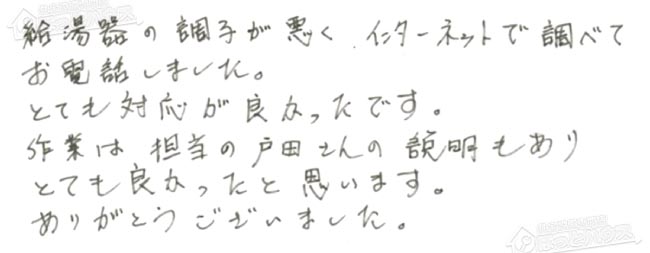 給湯器の調子が悪く、インターネットで調べて
お電話しました。
とても対応が良かったです。
作業は担当の戸田さんの説明もあり
とても良かったと思います。
ありがとうございました。